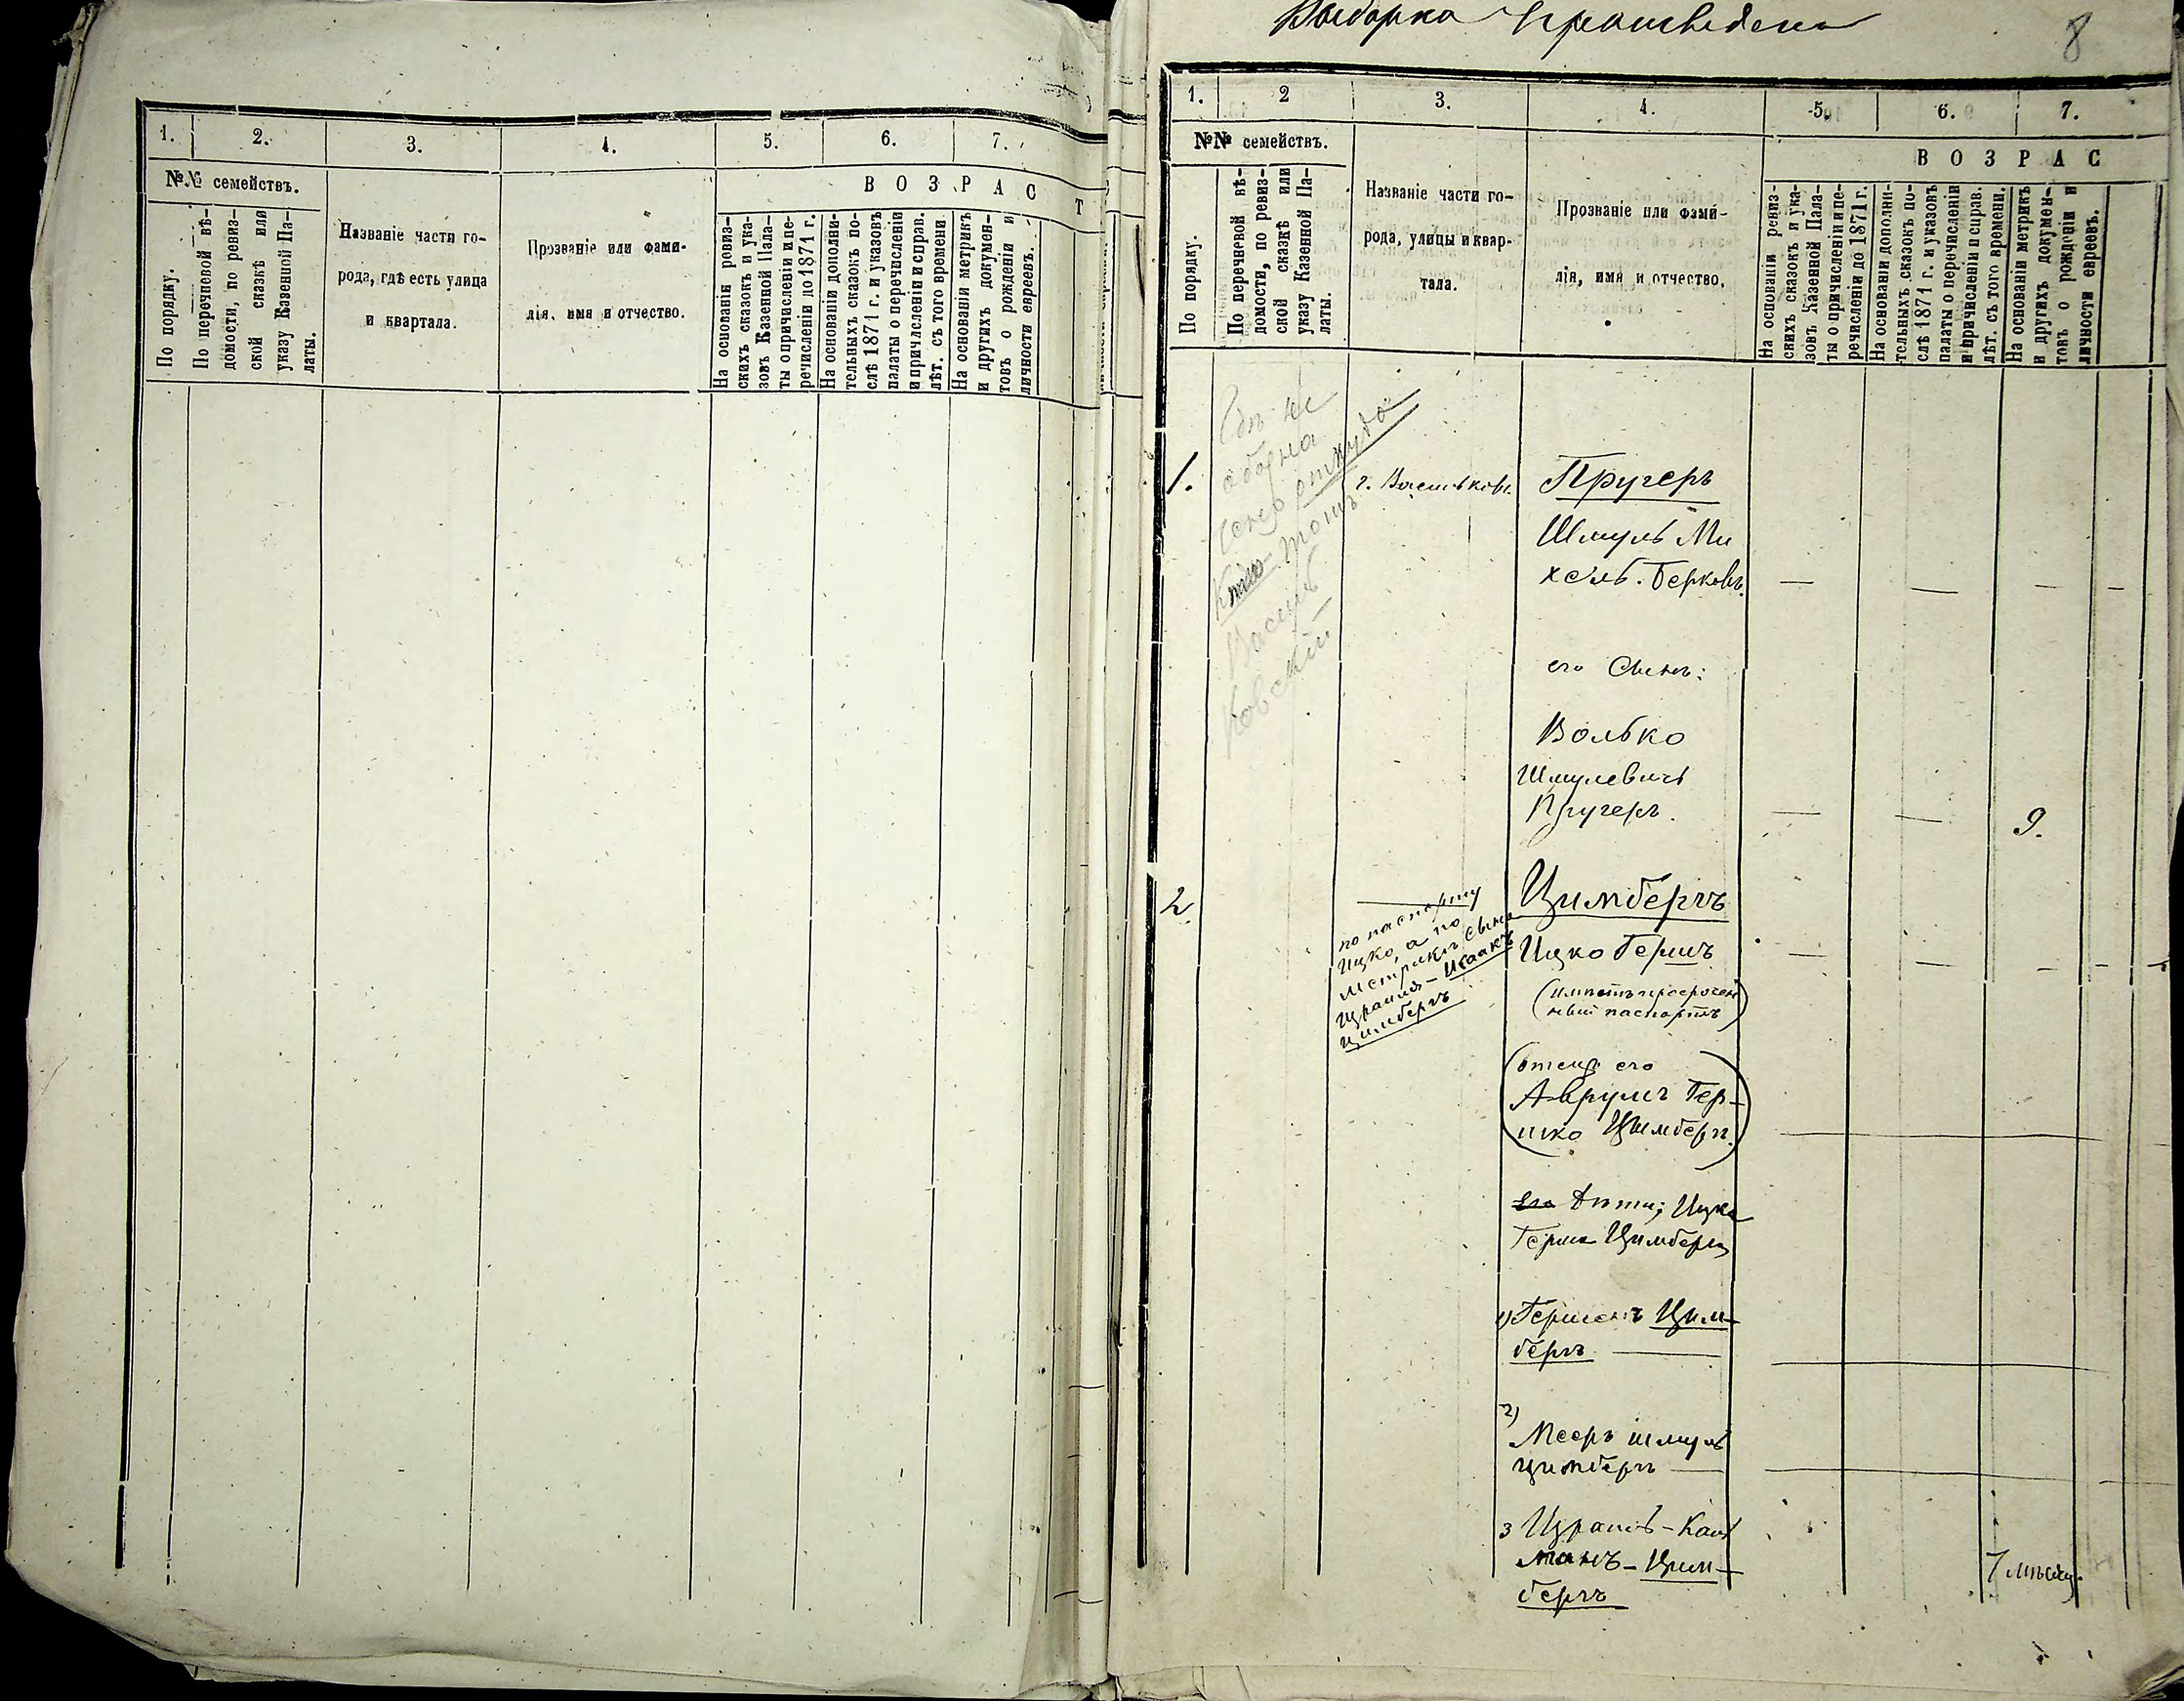 1.
2.
3.
4.
5.
6.
7.
№№ семействъ.
В О З Р А С Т
По порядку.
По перечневой вѣ-
домости, по ревиз-
ской сказкѣ или
указу Казенной Па-
латы.
Названіе части го-
рода, гдѣ есть улица
и квартала.
Прозваніе или фами-
лія, имя и отчество.
На основаніи ревиз-
скихъ сказокъ и ука-
зовъ Казенной Пала-
ты о причисленіи и пе-
речисленіи до 1871 г.
На основаніи дополни-
тельныхъ сказокъ по-
слѣ 1871 г. и указовъ
палаты о перечисленіи
и причисленіи и справ.
лѣт. съ того времени
На основаніи метрикъ
и другихъ докумен-
товъ о рожденіи и
личности евреевъ.
Выборка произведена
8
1.
2
3.
4.
5.
6.
7.
№№ семействъ.
В О З Р А С
По порядку.
По перечневой вѣ-
домости, по ревиз-
ской сказкѣ или
указу Казенной Па-
латы.
Названіе части го-
рода, улицы и квар-
тала.
Прозваніе или фами-
лія, имя и отчество.
На основаніи ревиз-
скихъ сказокъ и ука-
зовъ Казенной Пала-
ты о причисленіи и пе-
речисленіи до 1871 г.
На основаніи дополни-
тельныхъ сказокъ по-
слѣ 1871 г. и указовъ
палаты о перечисленіи
и причисленіи и справ.
лѣт. съ того времени.
На основаніи метрикъ
и другихъ докумен-
товъ о рожденіи и
личности евреевъ.
откуда
Василь
ковскій
1.
г. Васильковъ.
Пругеръ
Шмуль Ми
хель. Берковъ.
его Сынъ:
Волько
Шмулевичъ
Пругеръ.
9.
2
по паспорту
Ицко, а по
метрикѣ сына
Израиля - Исаакъ
Цимбергъ
Цимбергъ
Ицко Гершъ
(имѣетъ просрочен
ный паспортъ)
(отецъ его
Аврумъ Гер-
шко Цимбергъ.)
его Дѣти; Ицка
Герша Цимберга
1) Гершенъ Цим-
бергъ
2)
Мееръ Шмуль
Цимбергъ
3 Израиль - Каль
манъ - Цим-
бергъ
7 мѣсяц.